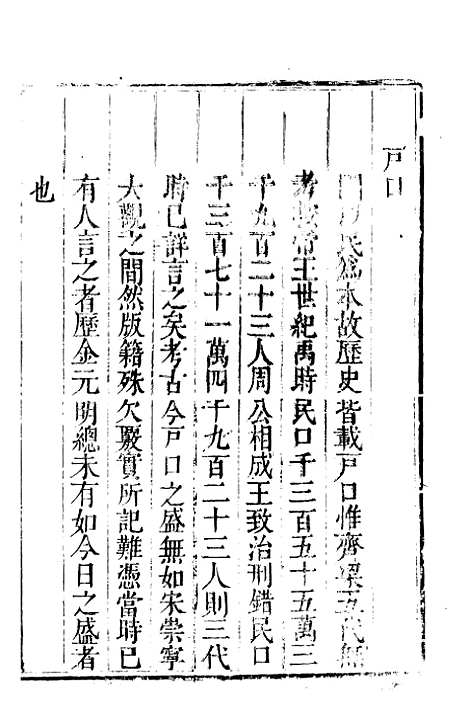 戸口
民爲本故歷史皆載戸口惟齊梁五代無
考 帝王世紀禹時民口千三百五十五萬三
千九百二十三人周公相成王致治刑錯民口
千三百七十一萬四千九百二十三人則三代
時已詳言之矣考古今戸口之盛無如宋崇寧
大觀之間然版籍殊欠覈實所記難憑當時已
有人言之者歷金元明總未有如今日之盛者
也